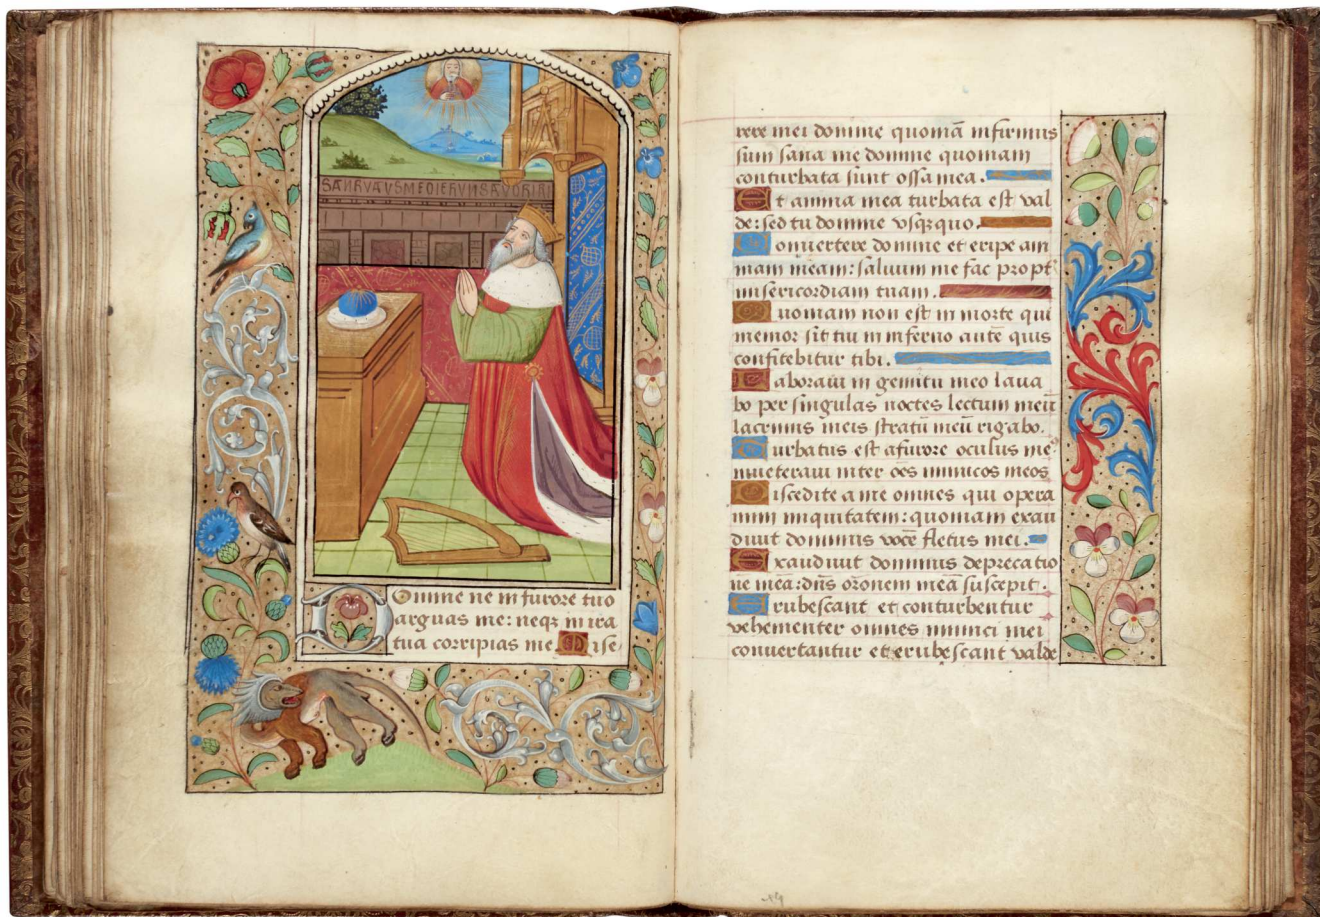 Domine ne in furore tuo
arguas me: neqꝫ in ira
tua corripias me. Mise-
rere mei domine quoniā infirmus
sum sana me domine quoniam
conturbata sunt ossa mea.
Et anima mea turbata est val
de: sed tu domine usqꝫquo.
Convertere domine et eripe ani
mam meam: salvum me fac propť
misericordiam tuam.
Quoniam non est in morte qui
memor sit tui in inferno autē quis
confitebitur tibi.
Laboravi in gemitu meo lava
bo per singulas noctes lectum meū
lacrimis meis stratū meū rigabo.
Turbatus est a furore oculus me
inveteravi inter oēs inimicos meos
Discedite a me omnes qui opera
mini iniquitatem: quoniam exau
divit dominus vocē fletus mei.
Exaudivit dominus deprecatio
nē meā: dn̄s orōnem meā suscepit.
Erubescant et conturbentur
vehementer omnes inimici mei
convertantur et erubescant valde